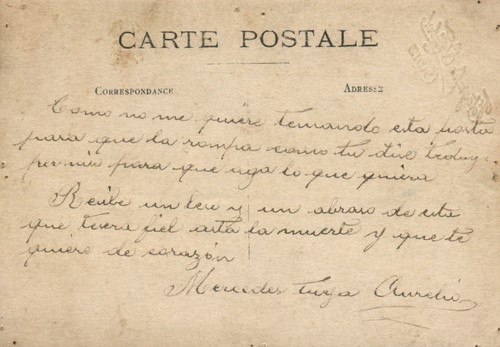 CARTE POSTALE
CORRESPONDANCE ADRESSE
Como no me quiere te mando esta
para que la rompa como tu dise
para que aga lo que quiera
Recibe un y un abraso de esta
que te sera fiel asta la muerte y que te
quiere de corazón
Mercedes tuya